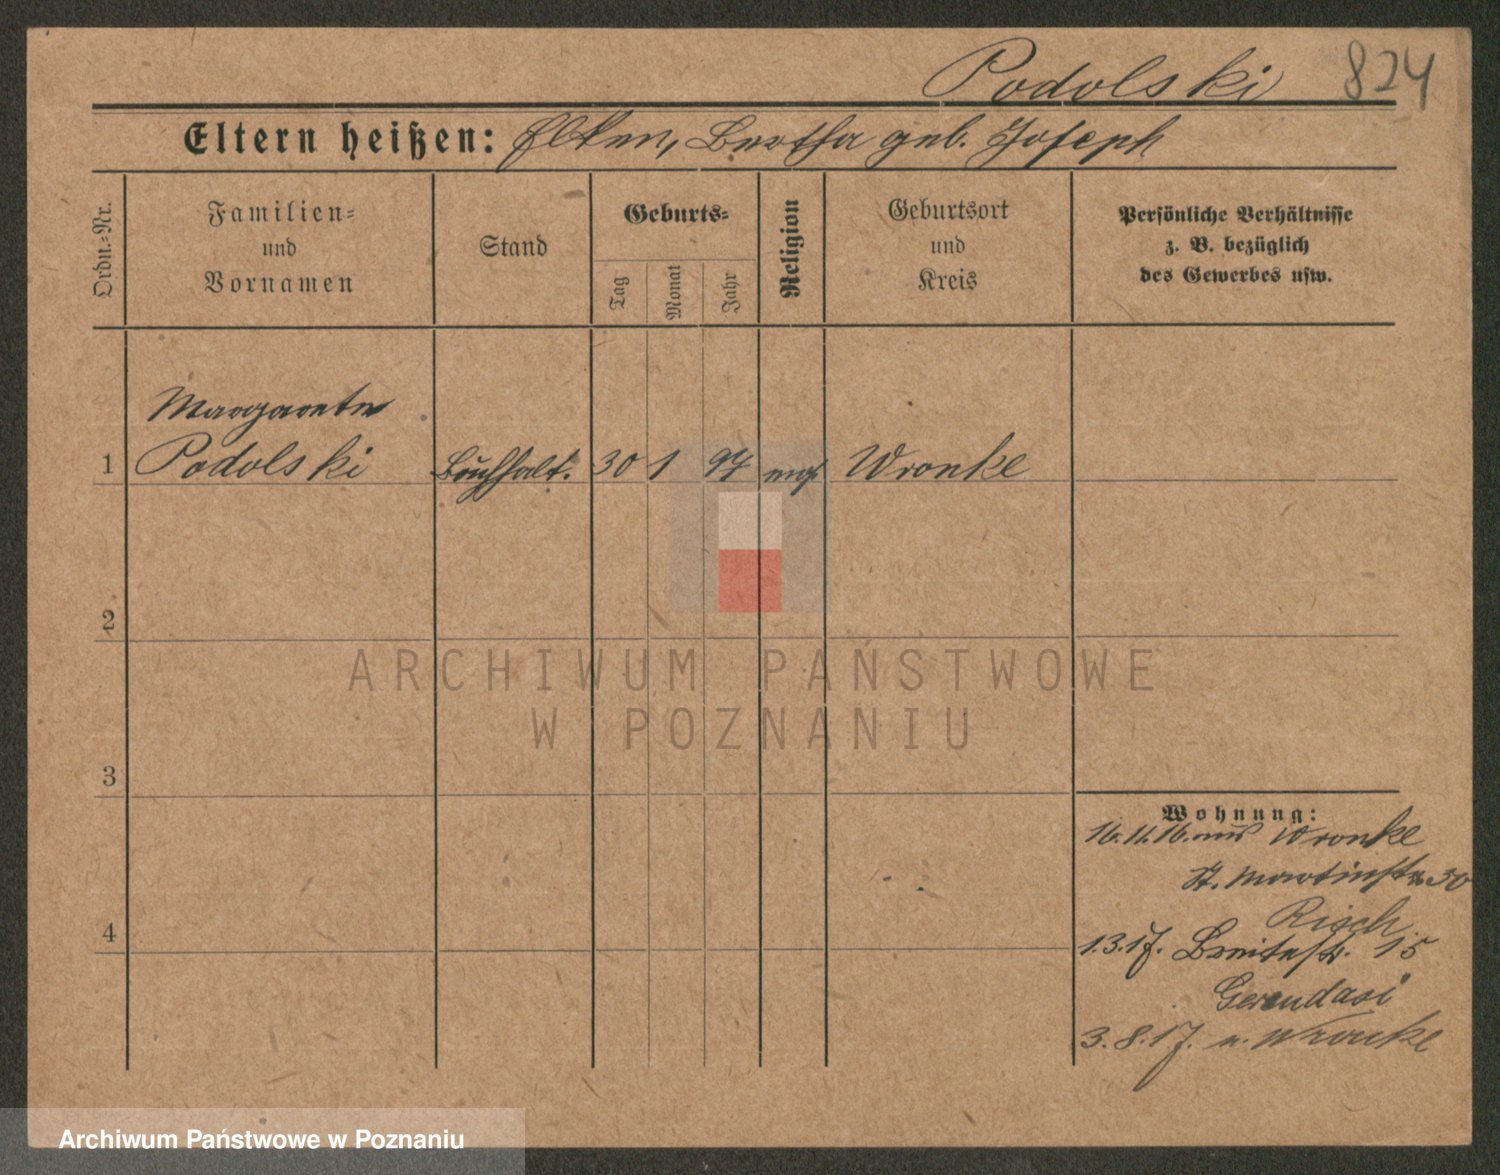 Podolski 824
Eltern heißen: Bertha geb. Joseph
Ordn.=Nr.
Familien=
und
Vornamen
Stand
Geburts=
Tag
Monat
Jahr
Religion
Geburtsort
und
Kreis
Persönliche Verhältnisse
z. B. bezüglich
des Gewerbes usw.
Margarete
1 Podolski Buchhalt. 30 1 97 Wronke
2
3
4
Wohnung:
16.11.16. aus Wronke
St. Martinstr. 30
Risch
1.3.17. Breitestr. 15
Gerendasi
3.8.17. n. Wronke
ARCHIWUM PAŃSTWOWE
W POZNANIU
Archiwum Państwowe w Poznaniu